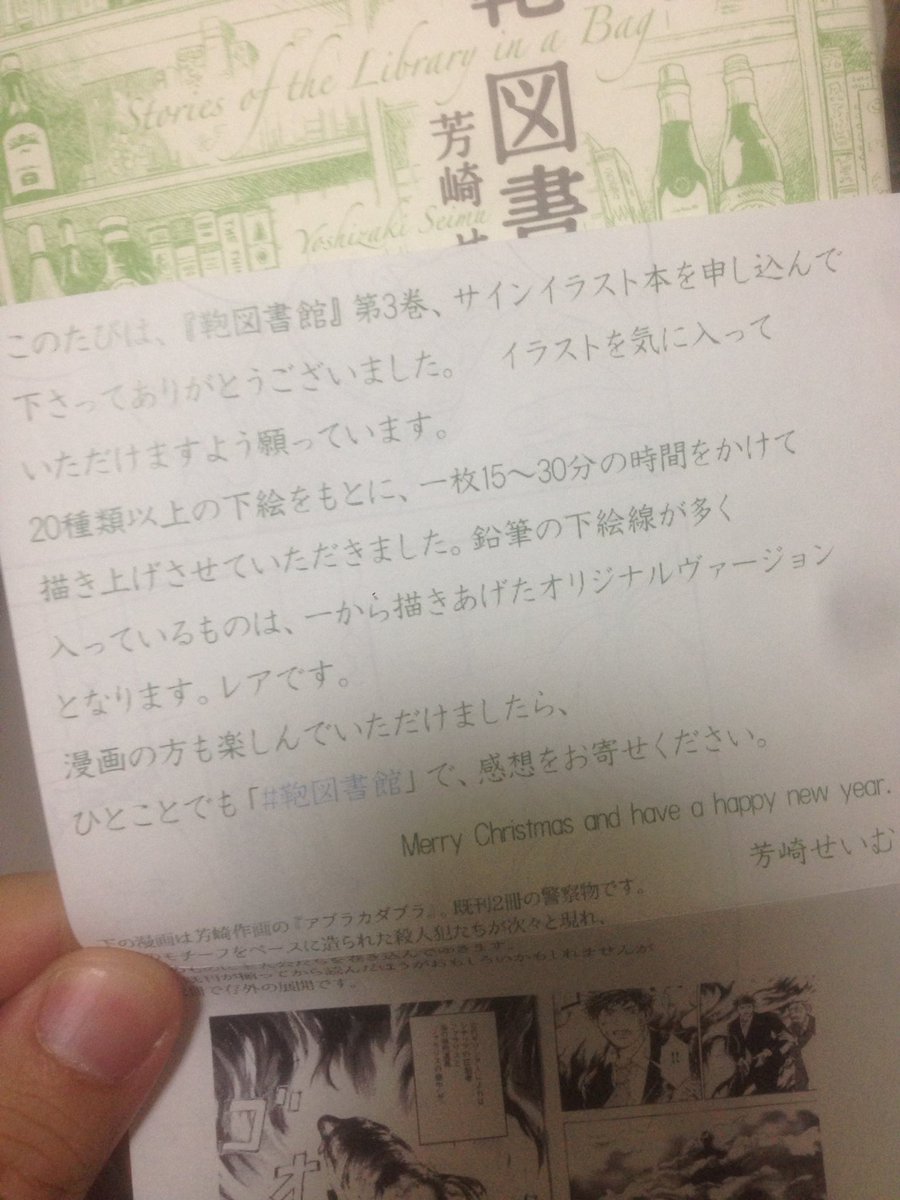 Stories of the Library in a Bag
図書
芳崎せ
Yoshizaki Seimu
このたびは、『鞄図書館』第3巻、サインイラスト本を申し込んで
下さってありがとうございました。 イラストを気に入って
いただけますよう願っています。
20種類以上の下絵をもとに、一枚15～30分の時間をかけて
描き上げさせていただきました。鉛筆の下絵線が多く
入っているものは、一から描きあげたオリジナルヴァージョン
となります。レアです。
漫画の方も楽しんでいただけましたら、
ひとことでも「#鞄図書館」で、感想をお寄せください。
Merry Christmas and have a happy new year.
芳崎せいむ
下の漫画は芳崎作画の『アブラカダブラ』。既刊2冊の警察物です。
モチーフをベースに造られた殺人犯たちが次々と現れ、
を巻き込んでゆきます。
読んだほうがおもしろいのかもしれませんが
外の展開です。
ゴ
オ
!!